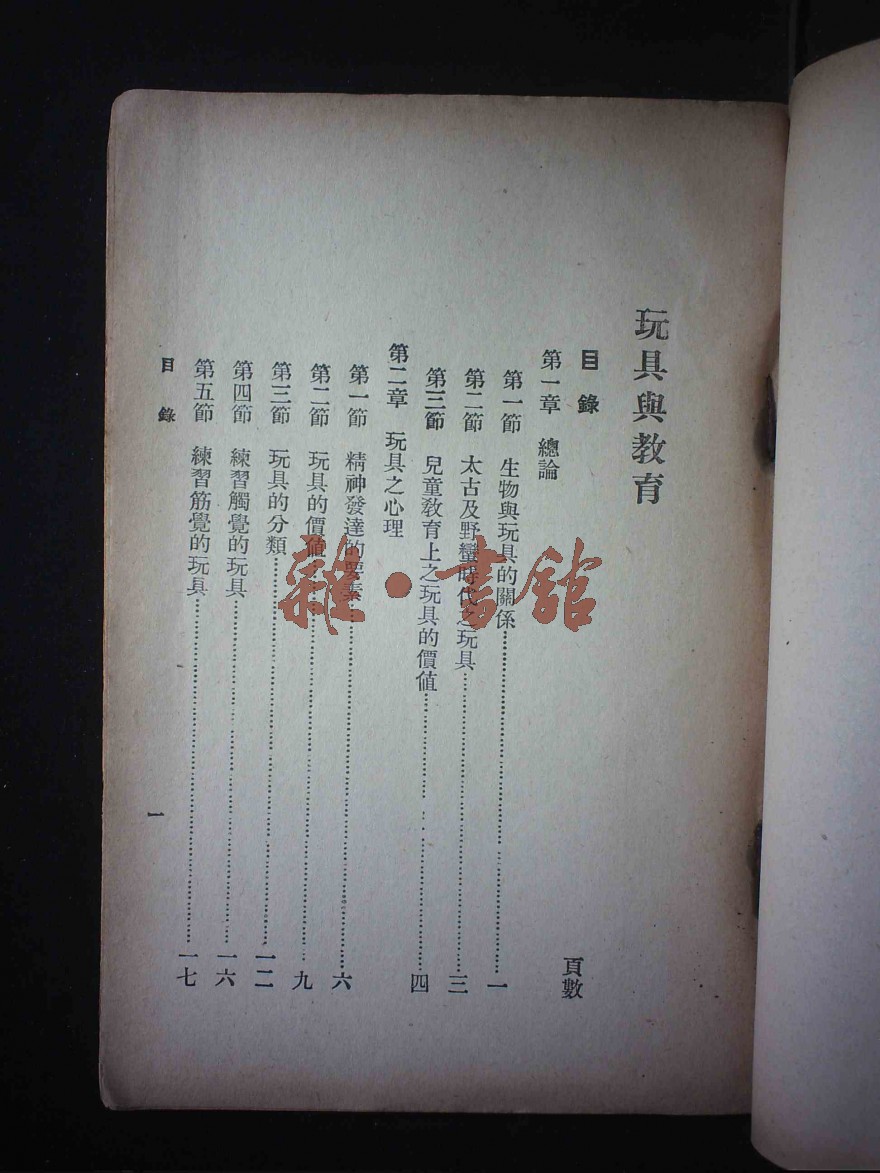 玩具與教育
目錄
頁數
第一章　總論
第一節　生物與玩具的關係……一
第二節　太古及野蠻時代之玩具……三
第三節　兒童教育上之玩具的價值……四
第二章　玩具之心理
第一節　精神發達的要素……六
第二節　玩具的價值……九
第三節　玩具的分類……一二
第四節　練習觸覺的玩具……一六
第五節　練習筋覺的玩具……一七
目錄
一
雜·書館